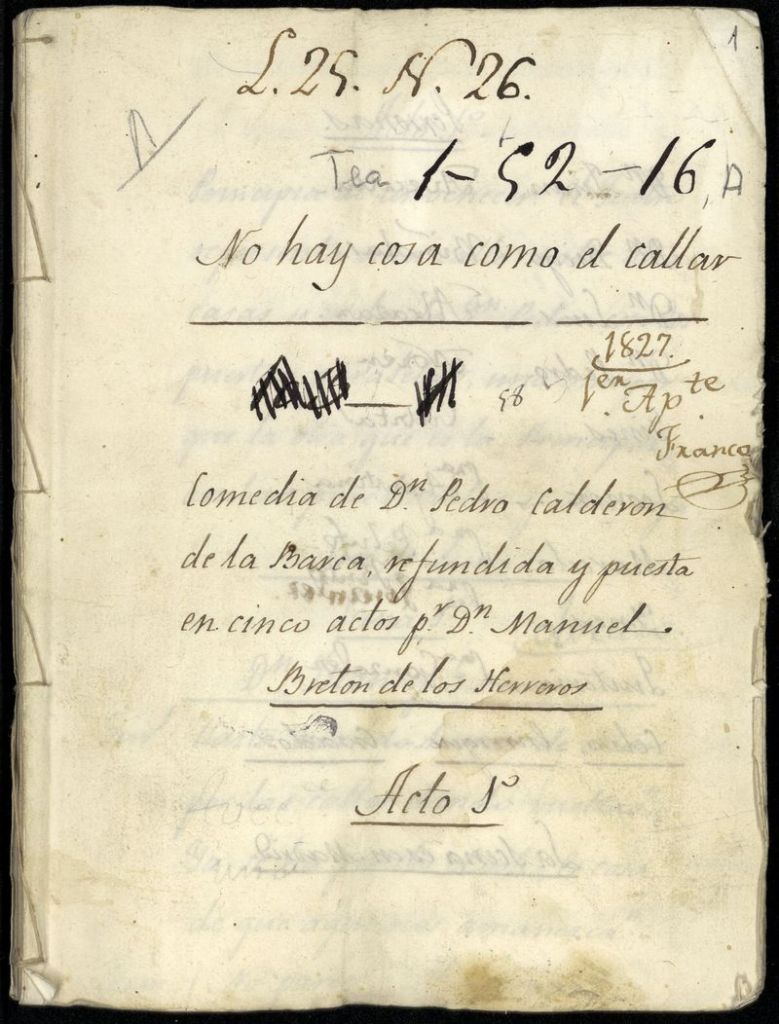 1
L. 25. N. 26.
Tea 1-52-16, A
No hay cosa como el callar
1827.
en Ap.te
Franco
Comedia de Dn. Pedro Calderon
de la Barca, refundida y puesta
en cinco actos pr. Dn. Manuel.
Breton de los Herreros
Acto 1º